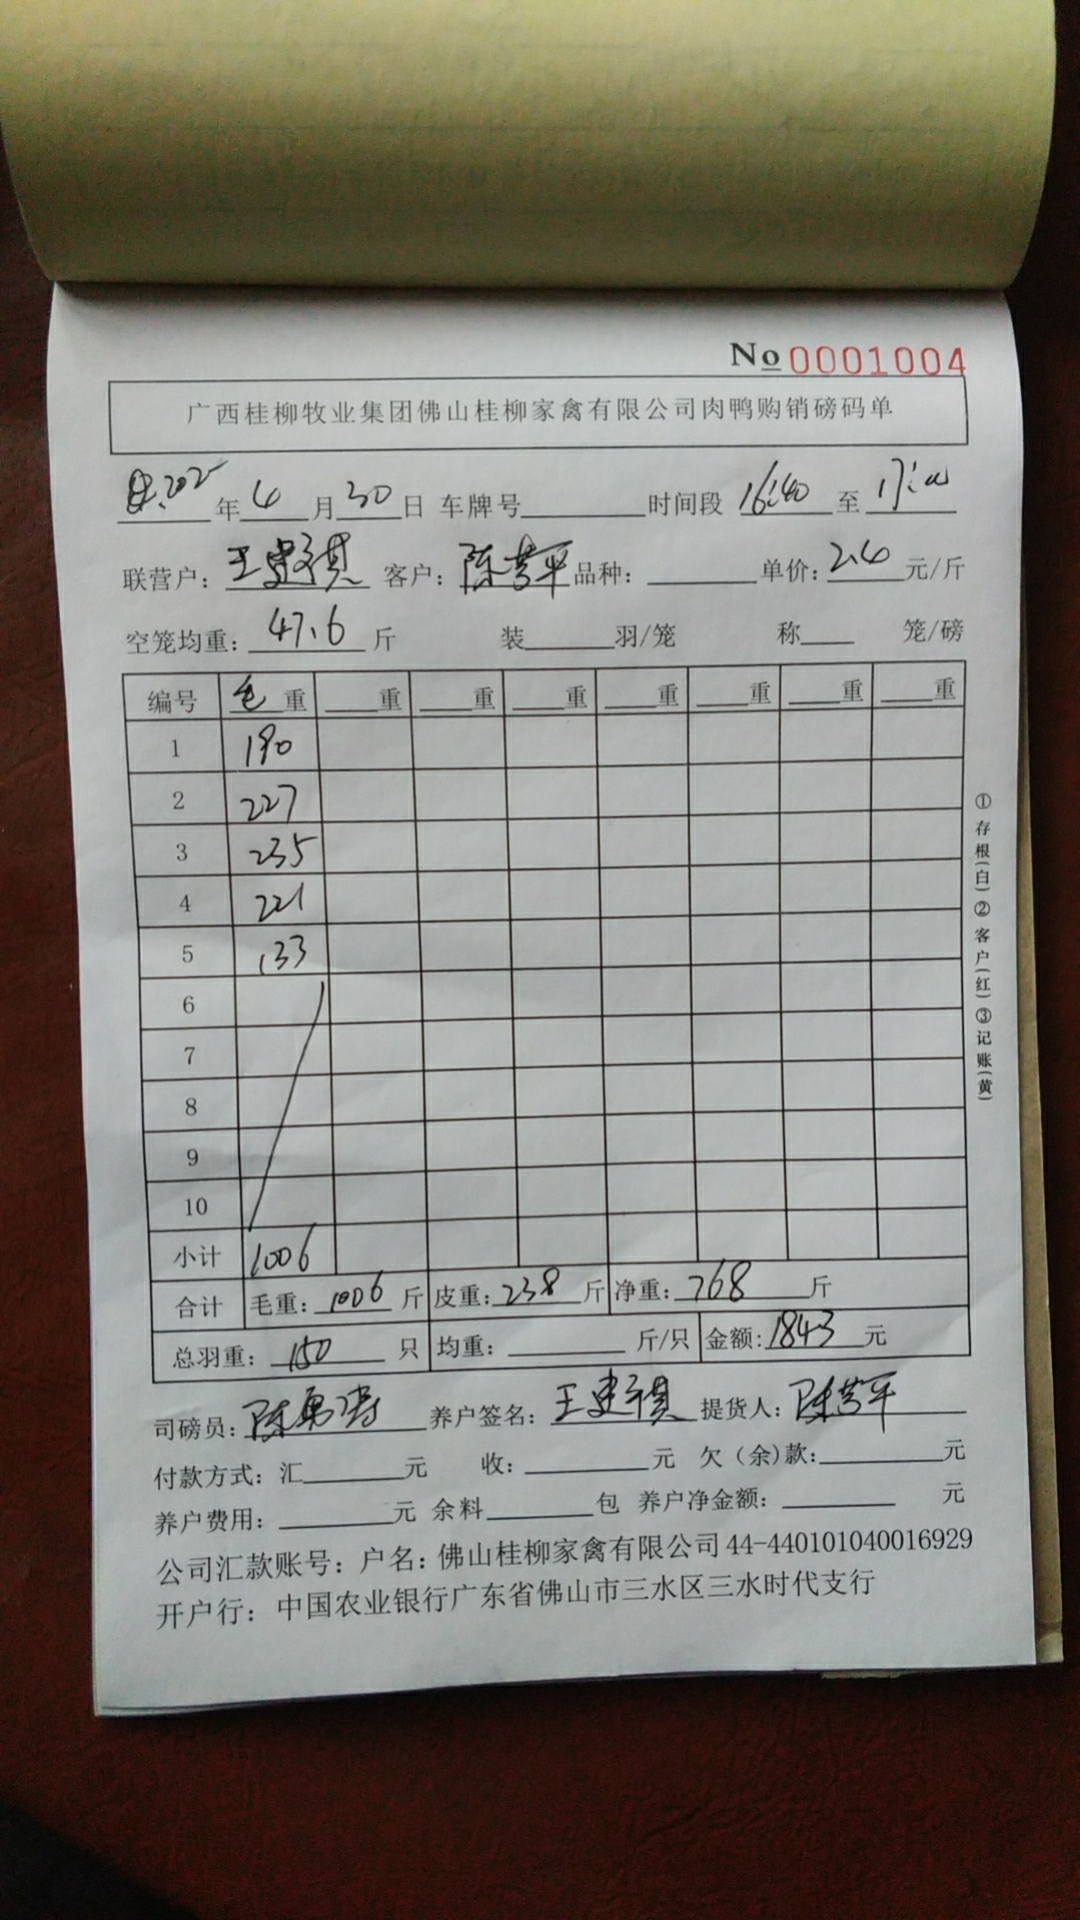 No 0001004
广西桂柳牧业集团佛山桂柳家禽有限公司肉鸭购销磅码单
年4月30日 车牌号 时间段 16:40 至 17:00
联营户: 王建祺 客户: 陈芸平 品种: 单价: 2.4 元/斤
空笼均重: 47.6 斤 装 羽/笼 称 笼/磅
编号 毛重 重 重 重 重 重 重 重
1 190
2 227
3 235
4 221
5 133
6
7
8
9
10
小计 1006
合计 毛重: 1006 斤 皮重: 238 斤 净重: 768 斤
总羽重: 150 只 均重: 斤/只 金额: 1843 元
司磅员: 陈 养户签名: 王建祺 提货人: 陈芸平
付款方式: 汇 元 收: 元 欠(余)款: 元
养户费用: 元 余料 包 养户净金额: 元
公司汇款账号: 户名: 佛山桂柳家禽有限公司 44-440101040016929
开户行: 中国农业银行广东省佛山市三水区三水时代支行
①存根(白)②客户(红)③记账(黄)